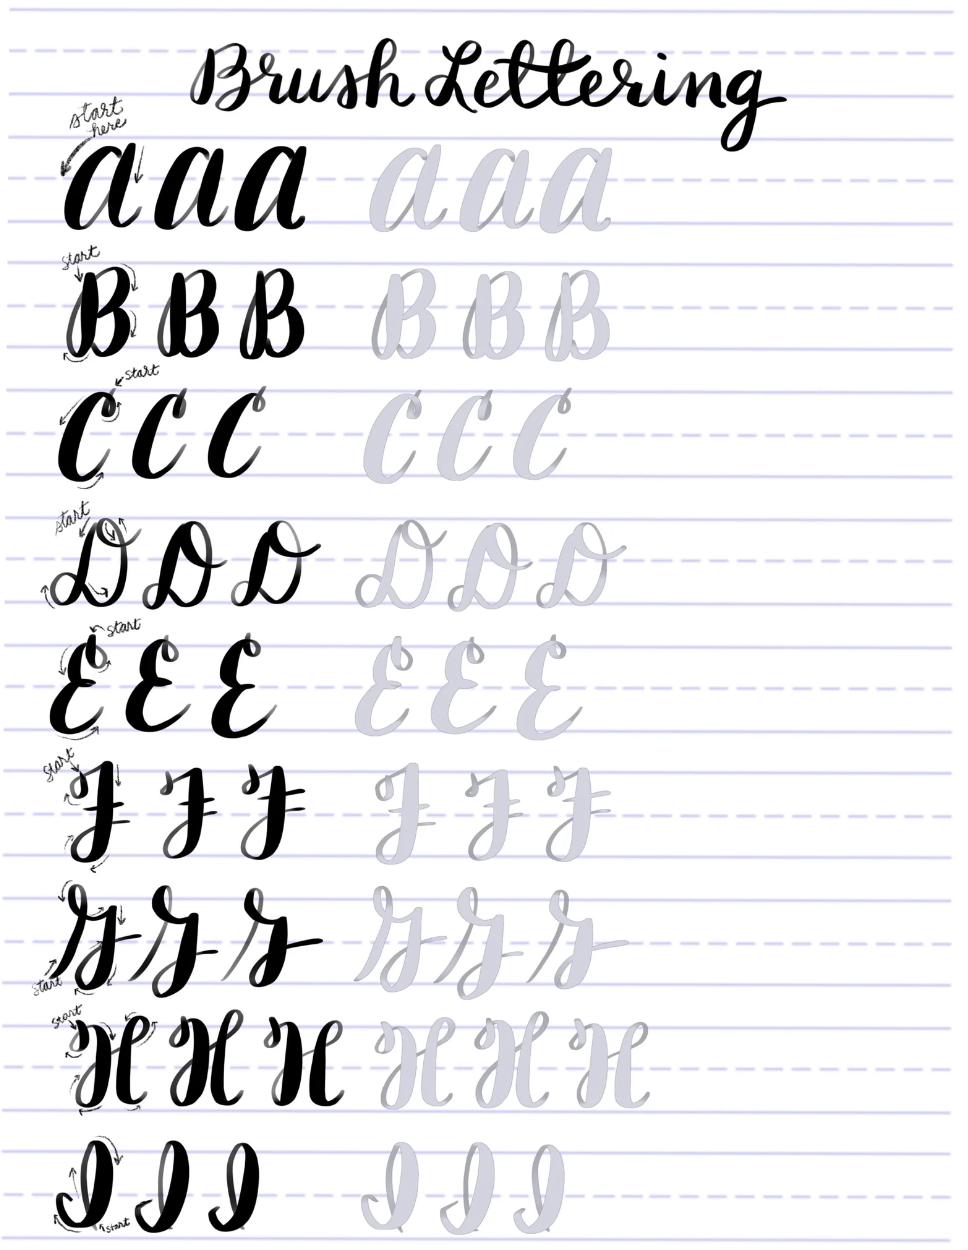 Brush Lettering
start
here
a a a a a a
start
B B B B B B
start
C C C C C C
start
D D D D D D
start
E E E E E E
start
F F F F F F
G G G G G G
start
start
H H H H H H
I I I I I I
start